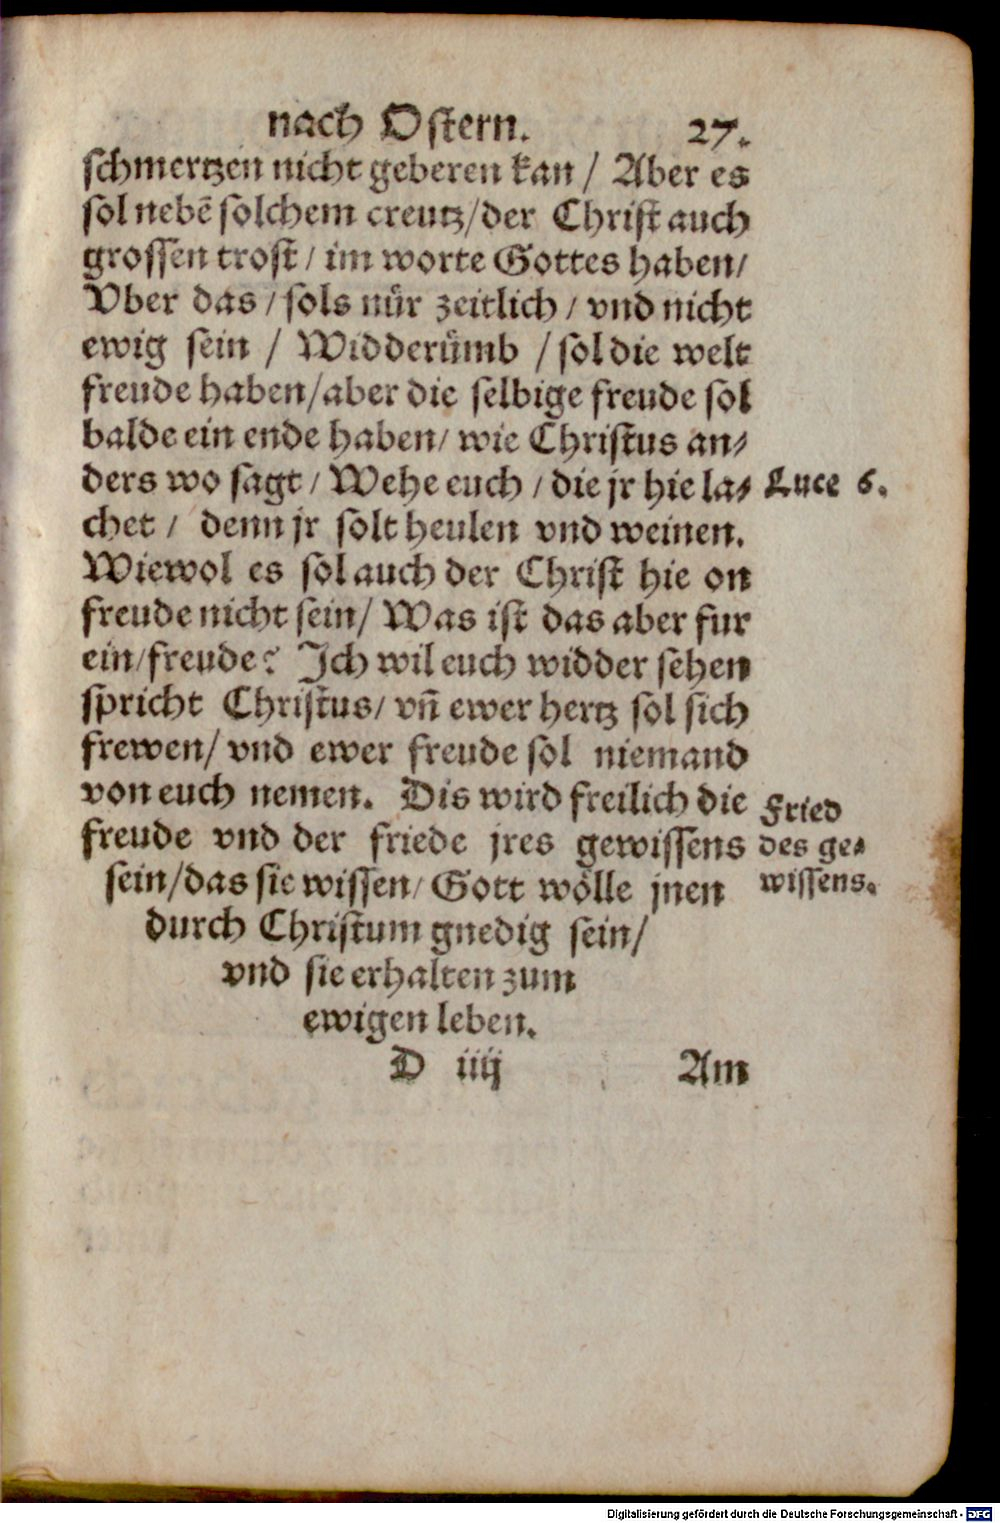 nach Ostern. 27.
schmertzen nicht geberen kan / Aber es
sol nebē solchem creutz / der Christ auch
grossen trost / im worte Gottes haben /
Vber das / sols nůr zeitlich / vnd nicht
ewig sein / Widderůmb / sol die welt
freude haben / aber die selbige freude sol
balde ein ende haben / wie Christus an⸗
ders wo sagt / Wehe euch / die jr hie la⸗
Luce 6.
chet / denn jr solt heulen vnd weinen.
Wiewol es sol auch der Christ hie on
freude nicht sein / Was ist das aber fur
ein / freude? Ich wil euch widder sehen
spricht Christus / vñ ewer hertz sol sich
frewen / vnd ewer freude sol niemand
von euch nemen. Dis wird freilich die
freude vnd der friede jres gewissens
Fried
des ge⸗
wissens.
sein / das sie wissen / Gott wölle jnen
durch Christum gnedig sein /
vnd sie erhalten zum
ewigen leben.
D iiij Am
Digitalisierung gefördert durch die Deutsche Forschungsgemeinschaft - DFG